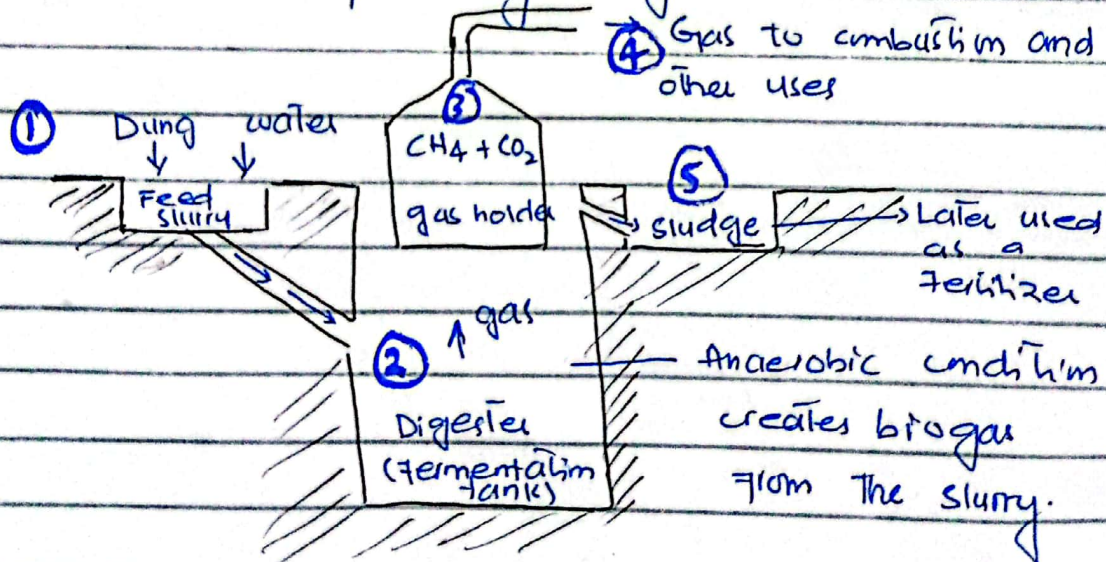 ④ Gas to combustion and
other uses
① Dung water
③
CH4 + CO2
gas holder
Feed
slurry
⑤
sludge
Later used
as a
Fertilizer
② gas
Digester
(Fermentation
tank)
Anaerobic condition
creates biogas
from the slurry.